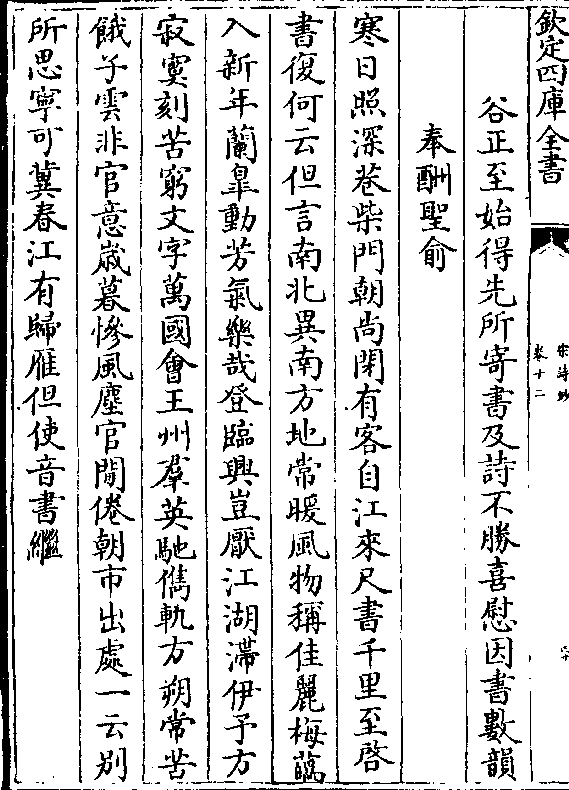 欽定四庫全書
宋詩鈔
卷十二
谷正至始得先所寄書及詩不勝喜慰因書數韻
奉酬聖俞
寒日照深巷柴門朝尚閉有客自江來尺書千里至啓
書復何云但言南北異南方地常暖風物稱佳麗梅蘤
入新年蘭臯動芳氣樂哉登臨興豈厭江湖滯伊予方
寂寞刻苦窮文字萬國會王州羣英馳儁軌方朔常苦
餓子雲非官意歲暮慘風塵官閒倦朝市出處一云别
所思寧可冀春江有歸雁但使音書繼